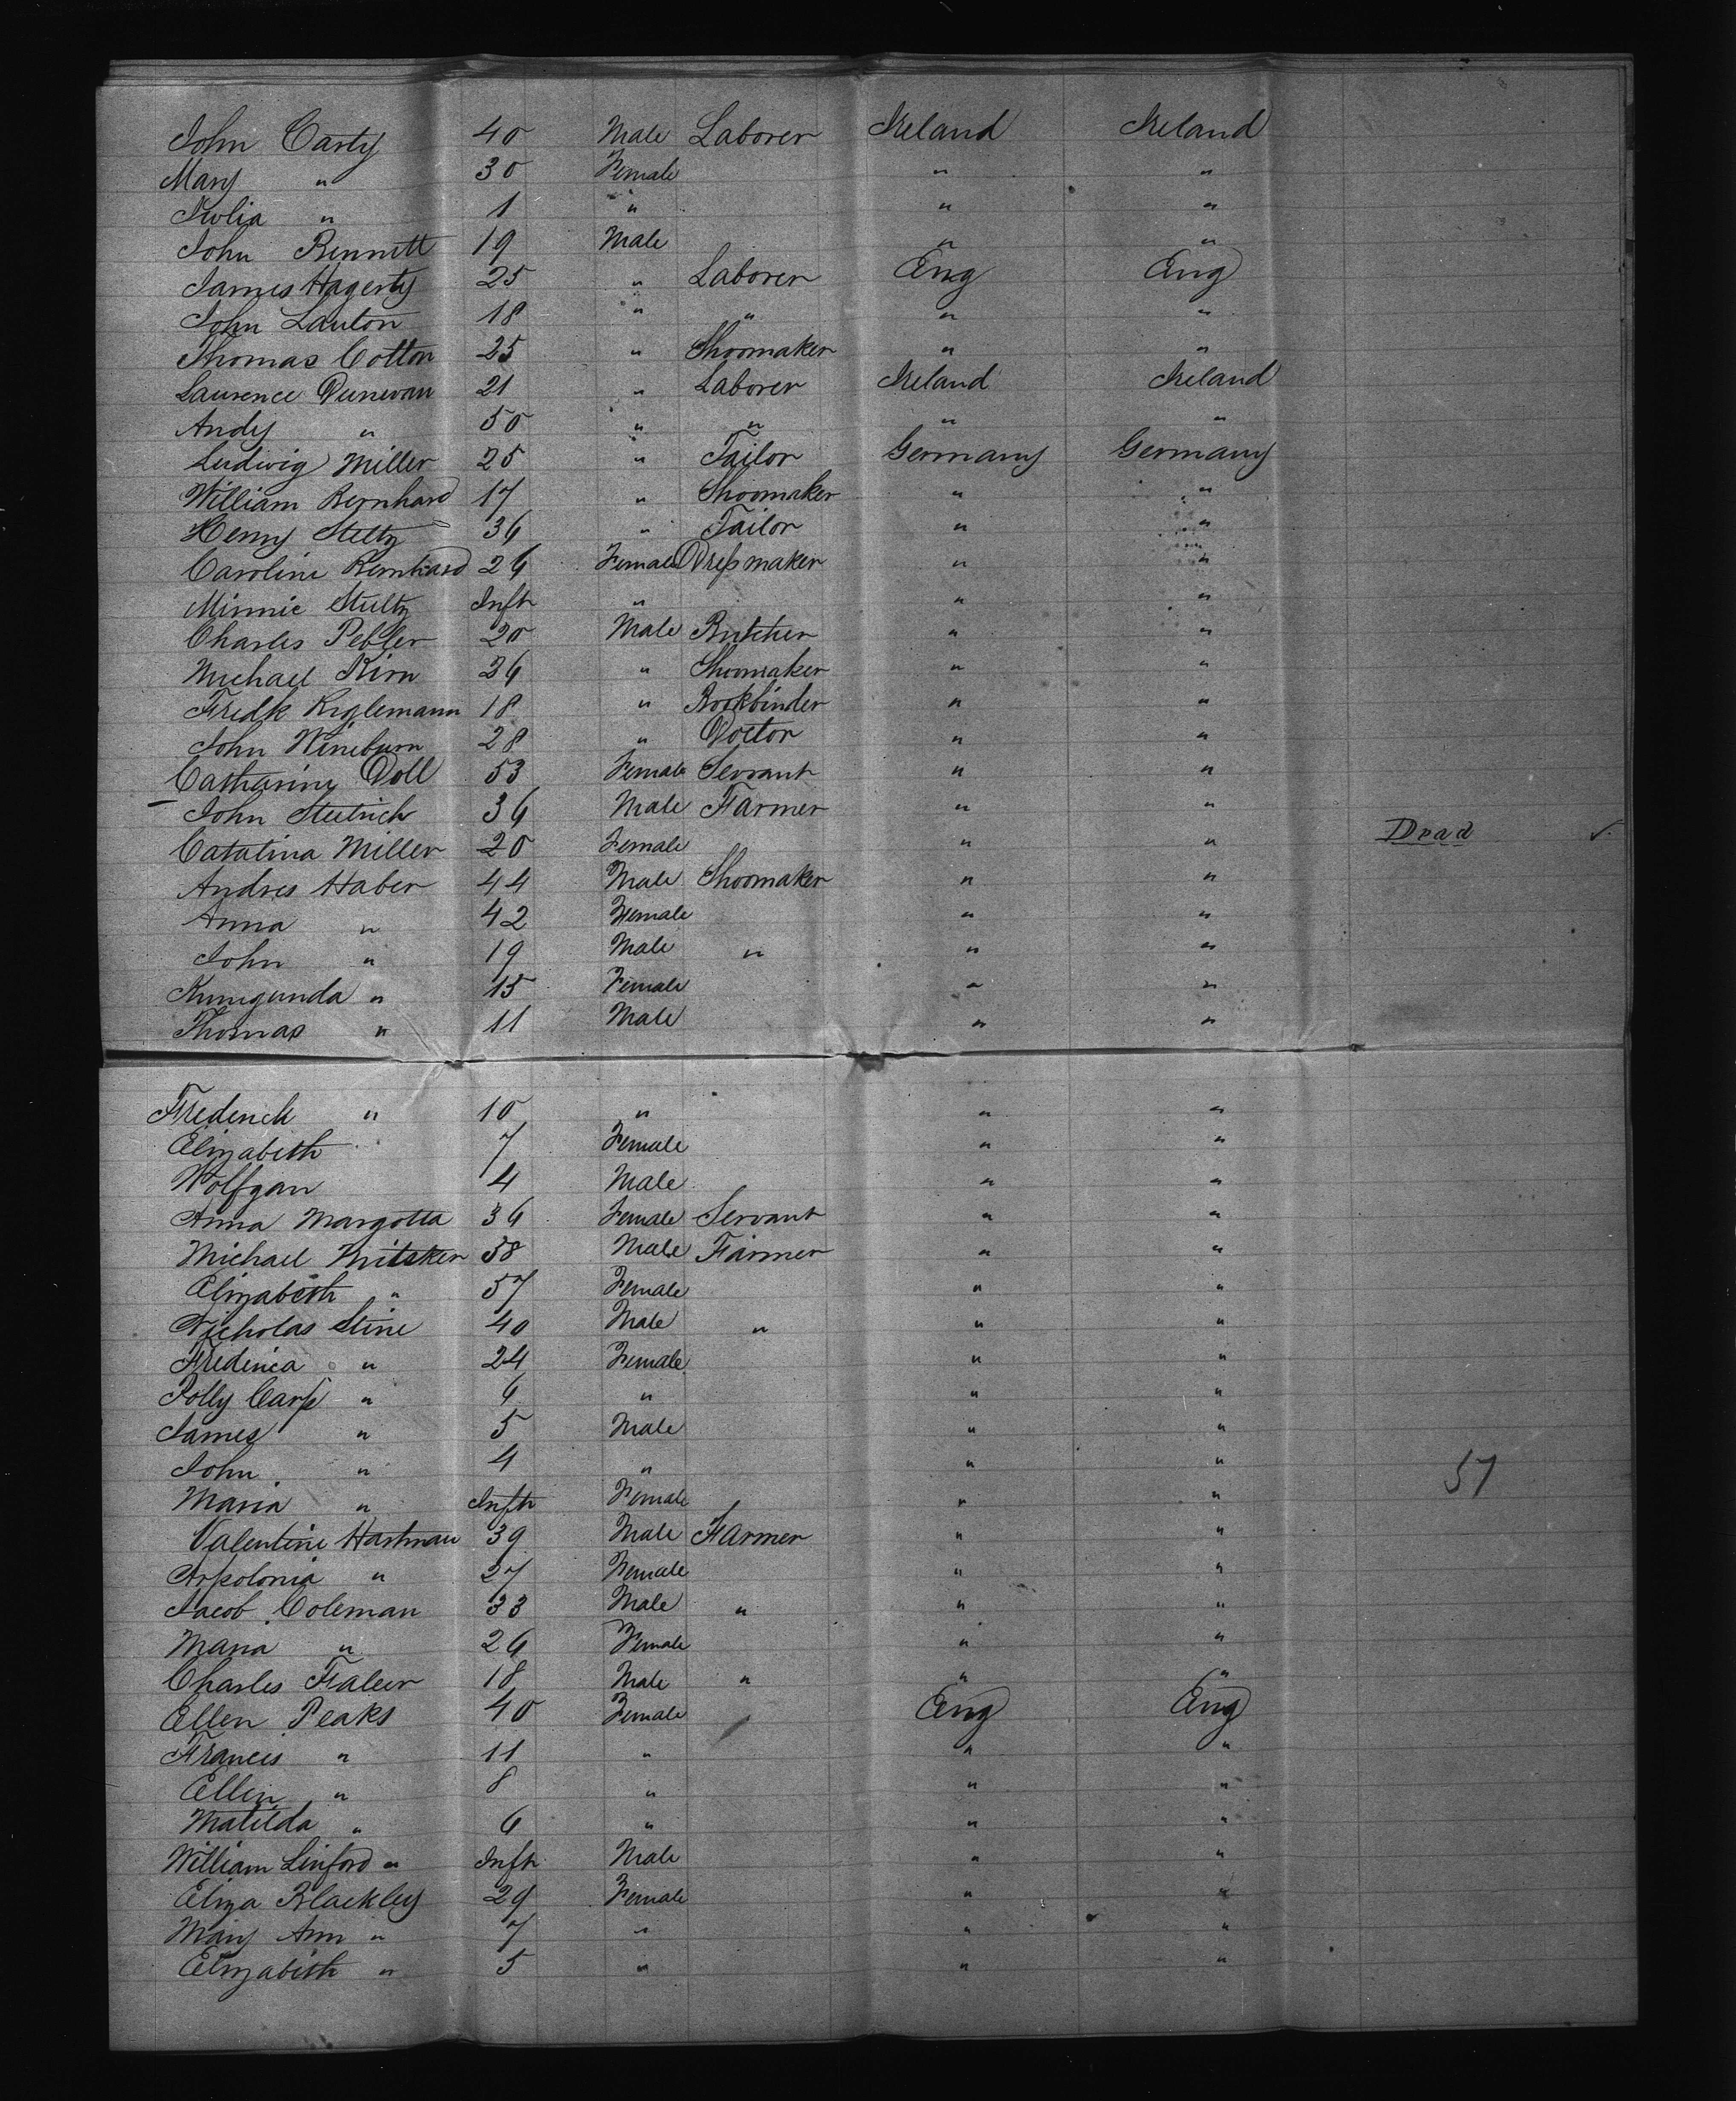 John Carty 40 Male Laborer Ireland Ireland
Mary " 30 Female " "
Julia " 1 " " "
John Bennett 19 Male " "
James Hagerty 25 " Laborer Eng Eng
John Lauton 18 " " " "
Thomas Cotton 25 " Shoomaker " "
Laurence Dunevan 21 " Laborer Ireland Ireland
Andy " 50 " " " "
Ludwig Miller 25 " Tailor Germany Germany
William Bernhard 17 " Shoomaker " "
Henry Steltz 36 " Tailor " "
Caroline Bernhard 26 Female Dressmaker " "
Minnie Steltz Inft " " "
Charles Pebler 20 Male Butcher " "
Michael Kirn 26 " Shoomaker " "
Fredk Riglemann 18 " Bookbinder " "
John Wineburn 28 " Doctor " "
Catharine Doll 53 Female Servant " "
John Steitrich 36 Male Farmer " "
Catalina Miller 20 Female " " Dead ✓
Andres Haber 44 Male Shoomaker " "
Anna " 42 Female " "
John " 19 Male " " "
Kunigunda " 15 Female " "
Thomas " 11 Male " "
Frederick " 10 " " "
Elizabeth 7 Female " "
Wolfgan 4 Male " "
Anna Margotta 36 Female Servant " "
Michael 58 Male Farmer " "
Elizabeth " 57 Female " "
Nicholas Stine 40 Male " " "
Frederica " 24 Female " "
Polly Carp " 6 " " "
James " 5 Male " "
John " 4 " " " 57
Maria " Inft Female " "
Valentine Hartman 39 Male Farmer " "
Appolonia " 27 Female " "
Jacob Coleman 33 Male " " "
Maria " 26 Female " "
Charles Faleer 18 Male " " "
Ellen Peaks 40 Female Eng Eng
Frances " 11 " " "
Ellen " 8 " " "
Matilda " 6 " " "
William Linford " Inft Male " "
Eliza Blackley 29 Female " "
Mary Ann " 7 " " "
Elizabeth " 5 " " "